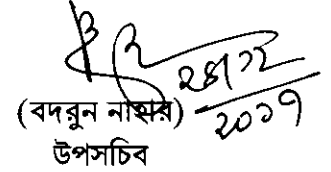 ২৪/১২
২০১৭
(বদরুন নাহার)
উপসচিব